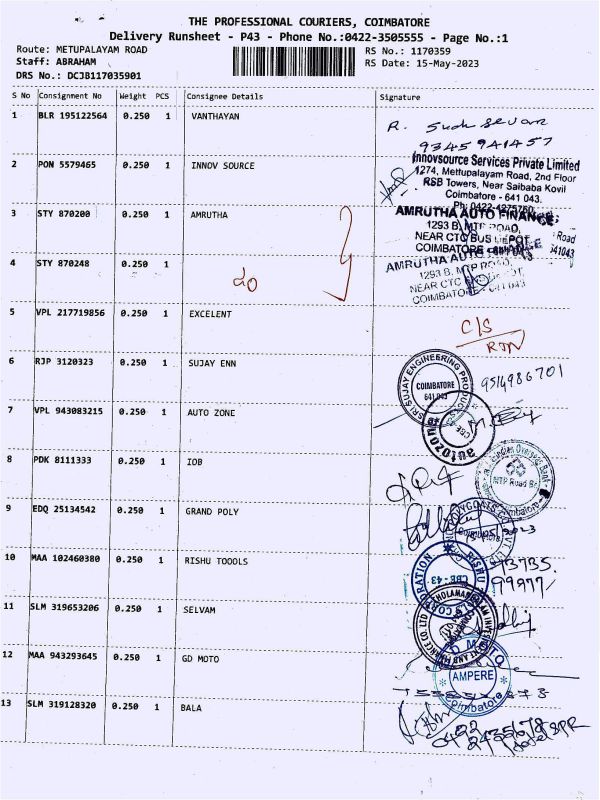 THE PROFESSIONAL COURIERS, COIMBATORE
Delivery Runsheet - P43 - Phone No.:0422-3505555 - Page No.:1
Route: METUPALAYAM ROAD RS No.: 1170359
Staff: ABRAHAM RS Date: 15-May-2023
DRS No.: DCJB117035901
S No Consignment No Weight PCS Consignee Details Signature
1 BLR 195122564 0.250 1 VANTHAYAN
R.
9345941457
2 PON 5579465 0.250 1 INNOV SOURCE
Innovsource Services Private Limited
1274, Mettupalayam Road, 2nd Floor
RSB Towers, Near Saibaba Kovil
Coimbatore - 641 043.
Ph: 0422-4275760
3 STY 870200 0.250 1 AMRUTHA
AMRUTHA AUTO FINANCE
1293 B, MTP ROAD,
NEAR CTC BUS DEPOT
COIMBATORE
Road
641043
4 STY 870248 0.250 1
AMRUTHA AUTO
1293 B, MTP ROAD,
NEAR CTC
COIMBATORE 641 043
5 VPL 217719856 0.250 1 EXCELENT
C/S
RTN
6 RJP 3120323 0.250 1 SUJAY ENN
SRI SUJAY ENGINEERING PRODUCTS
COIMBATORE
641 043
9514986701
7 VPL 943083215 0.250 1 AUTO ZONE
autozone
8 PDK 8111333 0.250 1 IOB
Indian Overseas Bank
MTP Road Br.
Coimbatore
9 EDQ 25134542 0.250 1 GRAND POLY
Coimbatore
2023
10 MAA 102460380 0.250 1 RISHU TOOOLS
RISHU CORPORATION
CBE - 43
93735.
99977/
11 SLM 319653206 0.250 1 SELVAM
12 MAA 943293645 0.250 1 GD MOTO
AMPERE
Coimbatore
13 SLM 319128320 0.250 1 BALA
0422
2435678